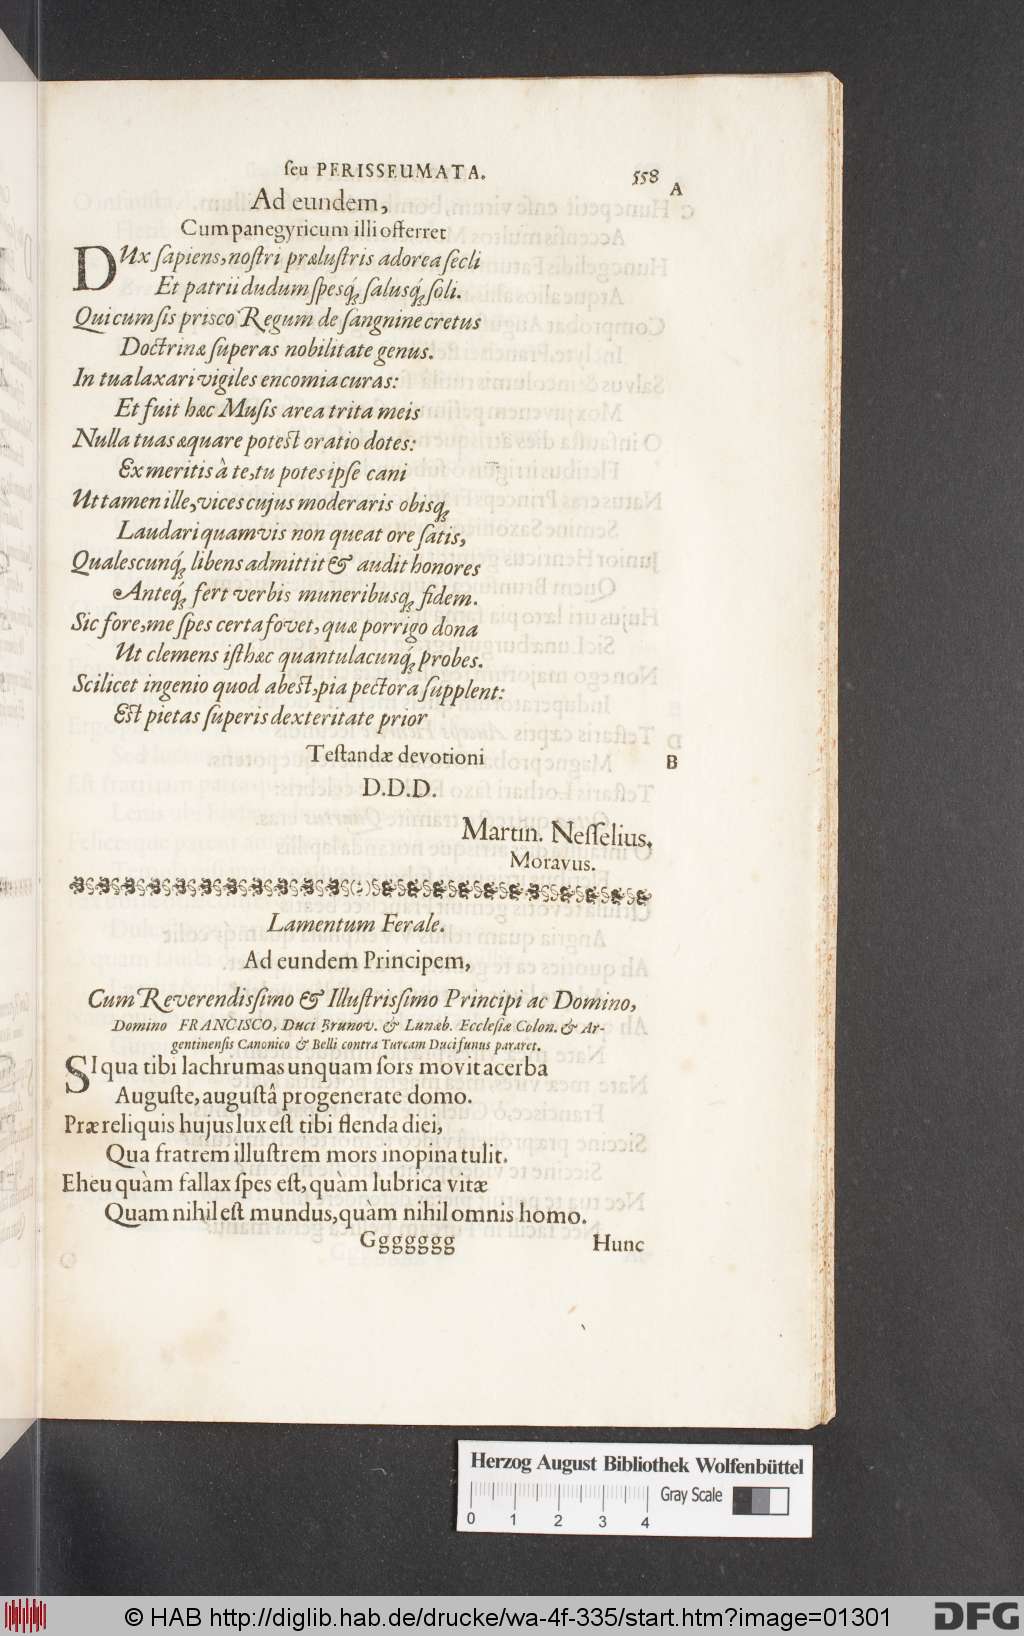 seu PERISSEUMATA.
558
A
Ad eundem,
Cum panegyricum illi offerret
DUx sapiens, nostri prælustris adorea secli
Et patrii dudum spesq́; salusq́; soli.
Qui cum sis prisco Regum de sangnine cretus
Doctrinæ superas nobilitate genus.
In tua laxari vigiles encomia curas:
Et fuit hæc Musis area trita meis
Nulla tuas æquare potest oratio dotes:
Ex meritis à te, tu potes ipse cani
Ut tamen ille, vices cujus moderaris obisq;
Laudari quamvis non queat ore satis,
Qualescunq́; libens admittit & audit honores
Anteq́; fert verbis muneribusq; fidem.
Sic fore, me spes certa fovet, quæ porrigo dona
Ut clemens isthæc quantulacunq́; probes.
Scilicet ingenio quod abest, pia pectora supplent:
Est pietas superis dexteritate prior
Testandæ devotioni
B
D.D.D.
Martin. Nesselius.
Moravus.
Lamentum Ferale.
Ad eundem Principem,
Cum Reverendissimo & Illustrissimo Principi ac Domino,
Domino FRANCISCO, Duci Brunov. & Lunæb. Ecclesiæ Colon. & Ar-
gentinensis Canonico & Belli contra Turcam Duci funus pararet.
SI qua tibi lachrumas unquam sors movit acerba
Auguste, augustâ progenerate domo.
Præ reliquis hujus lux est tibi flenda diei,
Qua fratrem illustrem mors inopina tulit.
Eheu quàm fallax spes est, quàm lubrica vitæ
Quam nihil est mundus, quàm nihil omnis homo.
Ggggggg
Hunc
Herzog August Bibliothek Wolfenbüttel
Gray Scale
0 1 2 3 4
© HAB http://diglib.hab.de/drucke/wa-4f-335/start.htm?image=01301
DFG